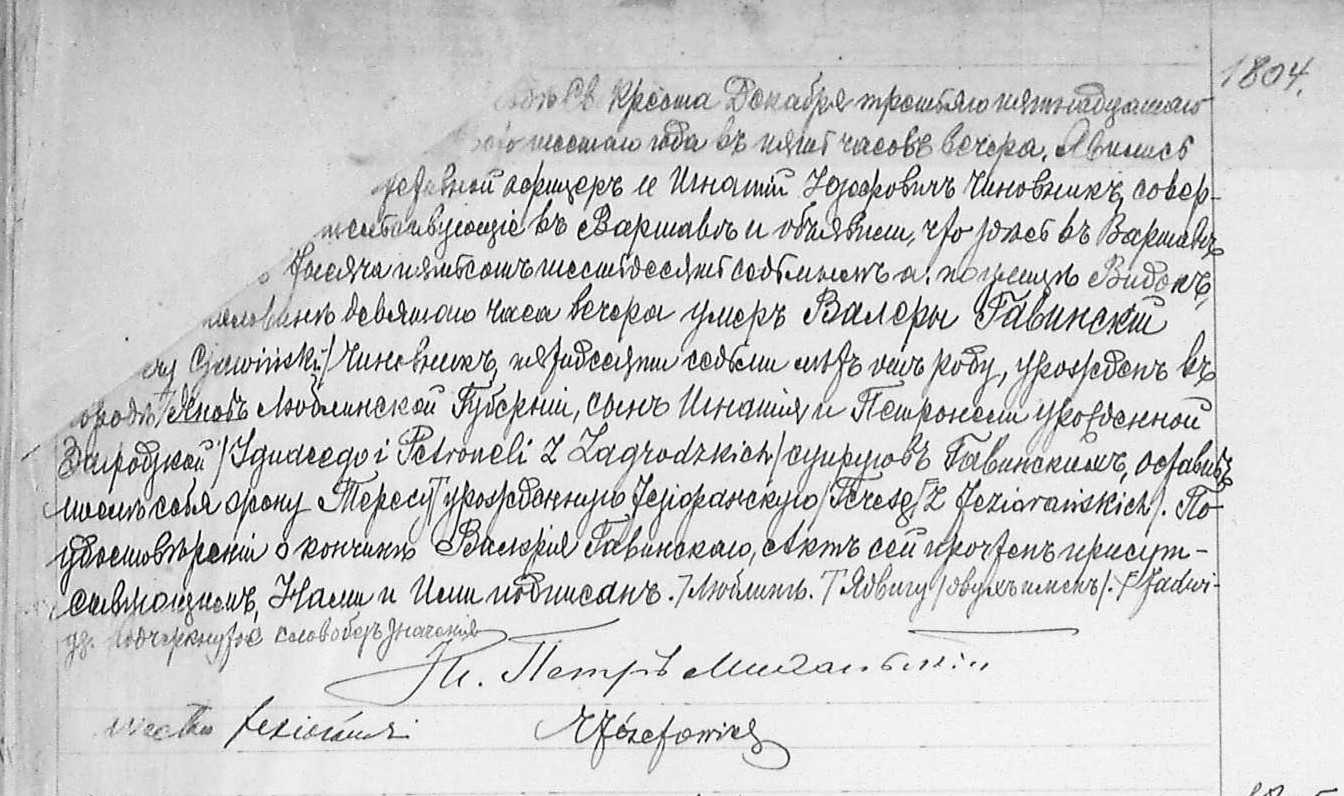 1804.
Св. Креста Декабря третьяго пятнадцатаго
шестаго года въ пять часовъ вечера. Явились
офицеръ и Игнатій Юзефовичъ Чиновникъ, совер-
въ Варшавѣ и объявили, что здѣсь въ Варшавѣ
тысяча пятьсотъ шестьдесятъ седьмымъ а. по улицѣ Видокъ,
половинѣ девятаго часа вечера умеръ Валеры Гавинскій
Gawiński/ Чиновникъ, пятидесяти седьми лѣтъ отъ роду, урожденъ въ
городѣ Яновъ Люблинской Губерніи, сынъ Игнатія и Петронели урожденной
Загродзкой /Ignacego i Petroneli z Zagrodzkich/ супруговъ Гавинскихъ, оставивъ
послѣ себя жену Тересу урожденную Іезіоранскую /Teresę z Jeziorańskich/. По
удостовѣреніи о кончинѣ Валерія Гавинскаго, Актъ сей прочтенъ присут-
ствующимъ, Нами и Ими подписанъ. /Люблинъ. Ядвигу /двухъ именъ/. Jadwi-
gę. подчеркнутое слово безъ значенія
Кс. Петръ
Józefowicz